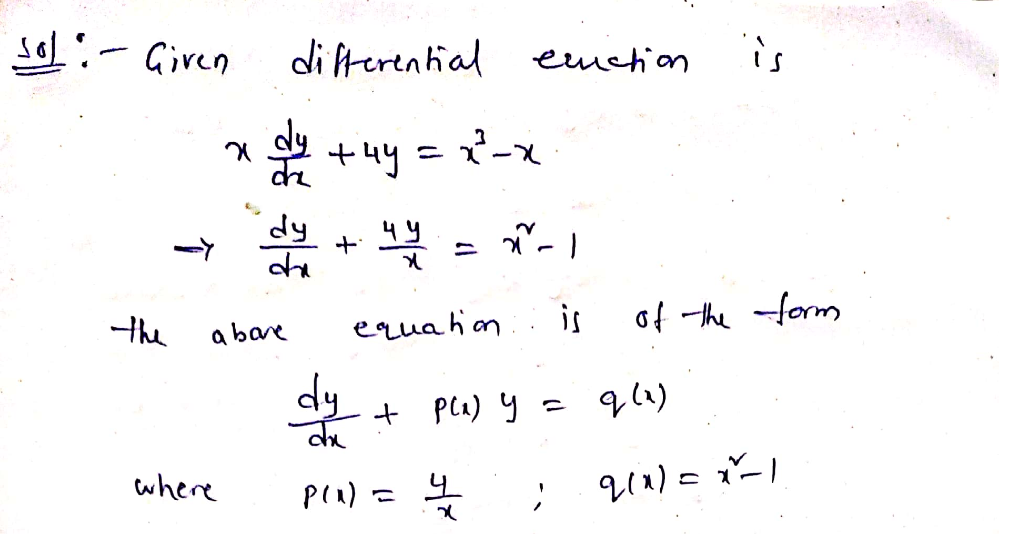 Sol :- Given differential equction is
x dy/dx + 4y = x³ - x
→ dy/dx + 4y/x = x² - 1
the above equation is of the form
dy/dx + p(x) y = q(x)
where p(x) = 4/x ; q(x) = x² - 1